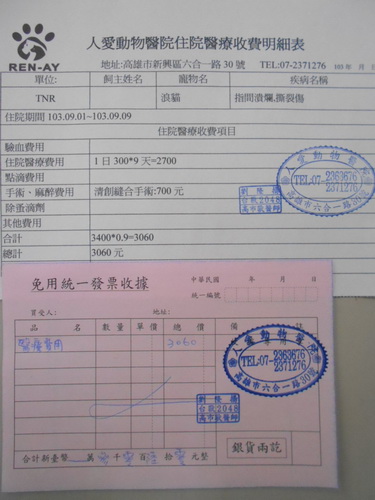 REN-AY
人愛動物醫院住院醫療收費明細表
地址:高雄市新興區六合一路30號 TEL:07-2371276 103年 月
單位: 飼主姓名 寵物名 疾病名稱
TNR 浪貓 指間潰爛,撕裂傷
住院期間 103.09.01~103.09.09
住院醫療收費項目
驗血費用
住院醫療費用 1日300*9天=2700
點滴費用
手術、麻醉費用 清創縫合手術:700元
除蚤滴劑
其他費用
合計 3400*0.9=3060
總計 3060元
人愛動物醫院
TEL:07-2363676
2371276
高雄市六合一路30號
台獸2048
高市獸醫師
免用統一發票收據
中華民國 年 月 日
統一編號
買受人: 地址:
品名 數量 單價 總價 備註
醫療費用 3060
人愛動物醫院
TEL:07-2363676
2371276
高雄市六合一路30號
台獸2048
高市獸醫師
合計新臺幣 萬 千 百 拾 元整
銀貨兩訖